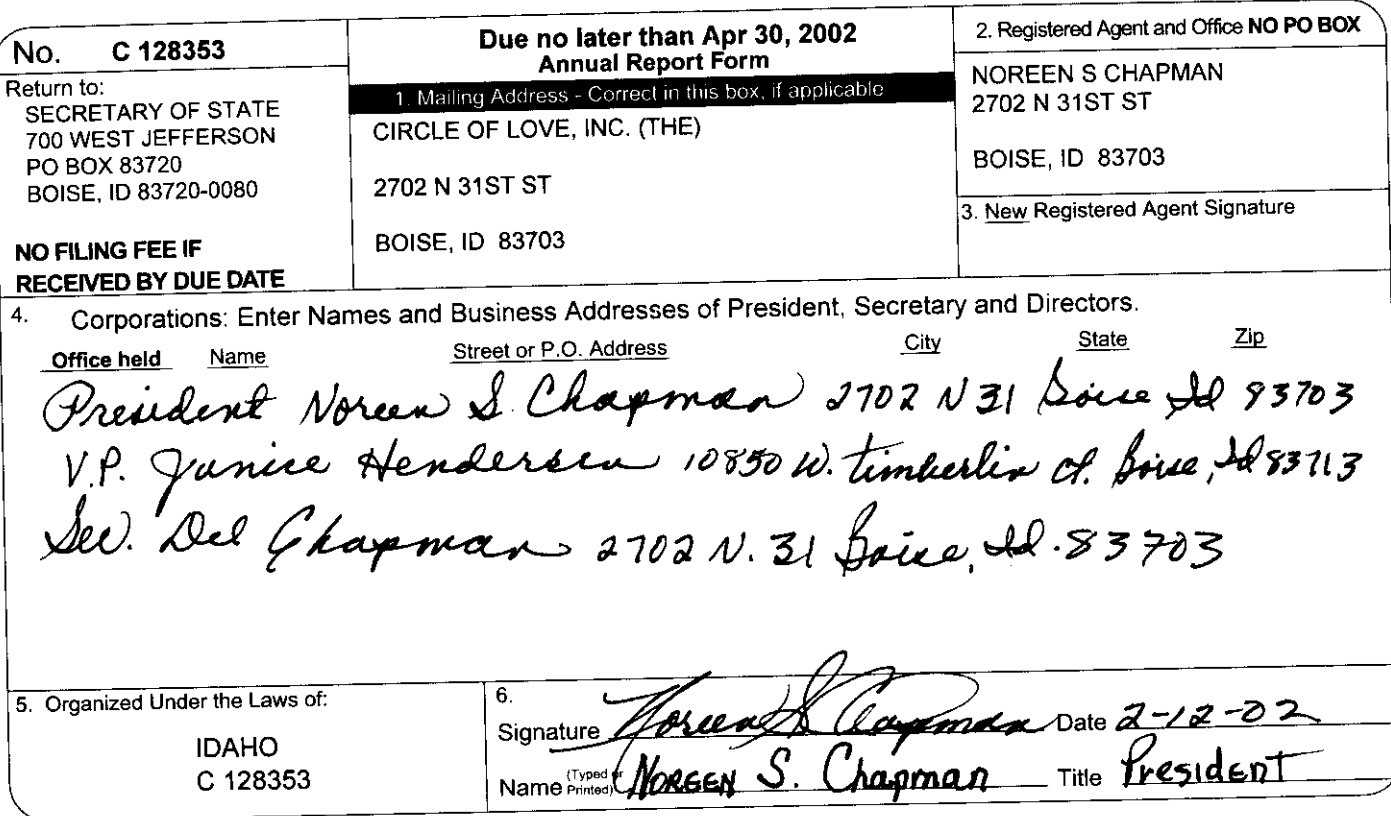 No. C 128353
Return to:
SECRETARY OF STATE
700 WEST JEFFERSON
PO BOX 83720
BOISE, ID 83720-0080
NO FILING FEE IF
RECEIVED BY DUE DATE
Due no later than Apr 30, 2002
Annual Report Form
1. Mailing Address - Correct in this box, if applicable
CIRCLE OF LOVE, INC. (THE)
2702 N 31ST ST
BOISE, ID 83703
2. Registered Agent and Office NO PO BOX
NOREEN S CHAPMAN
2702 N 31ST ST
BOISE, ID 83703
3. New Registered Agent Signature
4. Corporations: Enter Names and Business Addresses of President, Secretary and Directors.
Office held Name Street or P.O. Address City State Zip
President Noreen S. Chapman 2702 N 31 Boise Id 83703
V.P. Janice Hendersen 10850 W. timberlin ct. Boise, Id 83713
Sec. Del Chapman 2702 N. 31 Boise, Id. 83703
5. Organized Under the Laws of:
IDAHO
C 128353
6.
Signature Noreen S Chapman Date 2-12-02
Name (Typed or Printed) NOREEN S. Chapman Title President